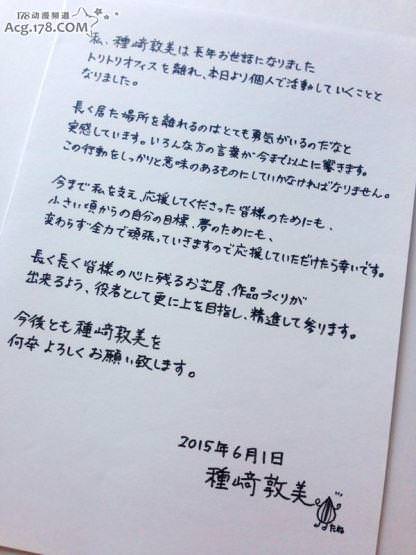 178动漫频道
Acg.178.com
私、種﨑敦美は長年お世話になりました
トリトリオフィスを離れ、本日より個人で活動していくことと
なりました。
長く居た場所を離れるのはとても勇気がいるのだなと
実感しています。いろんな方の言葉が今まで以上に響きます。
この行動をしっかりと意味のあるものにしていかなければなりません。
今まで私を支え、応援してくださった皆様のためにも、
小さい頃からの自分の目標、夢のためにも、
変わらず全力で頑張っていきますので応援していただけたら幸いです。
長く長く皆様の心に残るお芝居、作品づくりが
出来るよう、役者として更に上を目指し、精進して参ります。
今後とも種﨑敦美を
何卒よろしくお願い致します。
2015年6月1日
種﨑敦美
たね